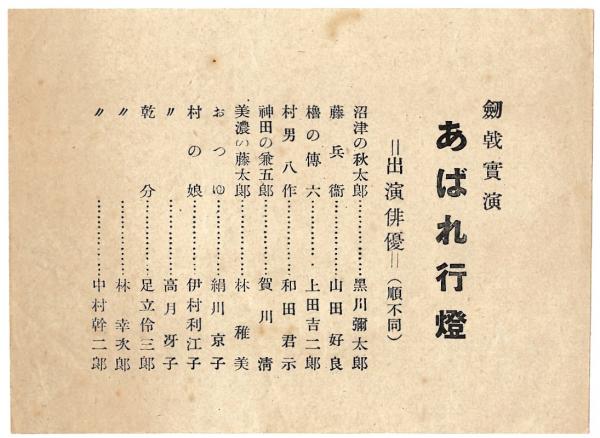 劔戟實演
あばれ行燈
＝出演俳優＝（順不同）
沼津の秋太郎…………………黒川彌太郎
藤兵衞…………………山田好良
櫓の傳六…………………上田吉二郎
村男八作…………………和田君示
神田の兼五郎…………………賀川清
美濃の藤太郎…………………林稚美
おつゆ…………………絹川京子
村の娘…………………伊村利江子
〃…………………高月冴子
乾分…………………足立伶三郎
〃…………………林幸次郎
〃…………………中村幹二郎